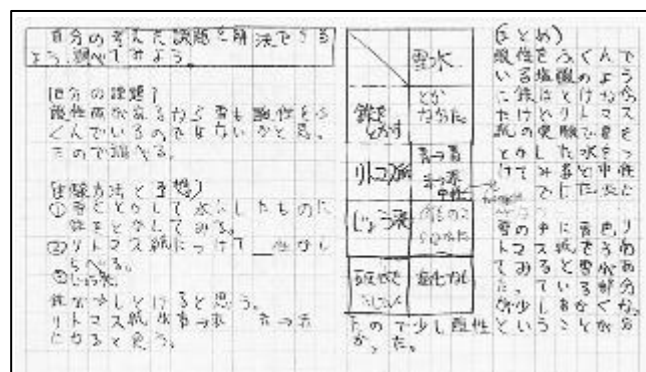 自分の考えた課題を解決できる
よう、調べてみよう。
(自分の課題)
酸性雨があるなら雪も酸性をふ
くんでいるのではないかと思っ
たので調べる。
(実験方法と予想)
①雪をとかして水にしたものに
鉄をとかしてみる。
②リトマス紙につけて 性か
らべる。
③じょう発
鉄が少しとけると思う。
リトマス紙は青→赤 赤→赤
になると思う。
雪水
鉄を
とかす
とか
なかった。
リトマス紙
青→青
赤→赤
中性
じょう発
変化なし
(まとめ)
酸性をふくんで
いる塩酸のよう
に鉄はとけなかっ
たけどリトマス
紙の実験で雪を
とかした水をつ
けてみると中性
でした。
雪の中に青色リ
トマス紙を
てみると雪があ
たっている部分
が少しあかくな
ったので少し酸性ということが分
かった。